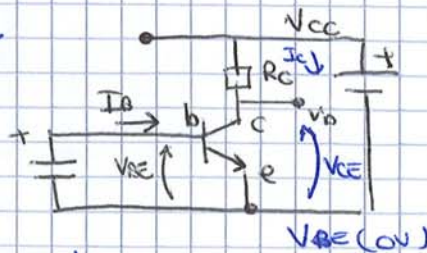 VCC
Ic
+
RC
IB
b
c
+
VBE
e
VCE
VBE (0V)